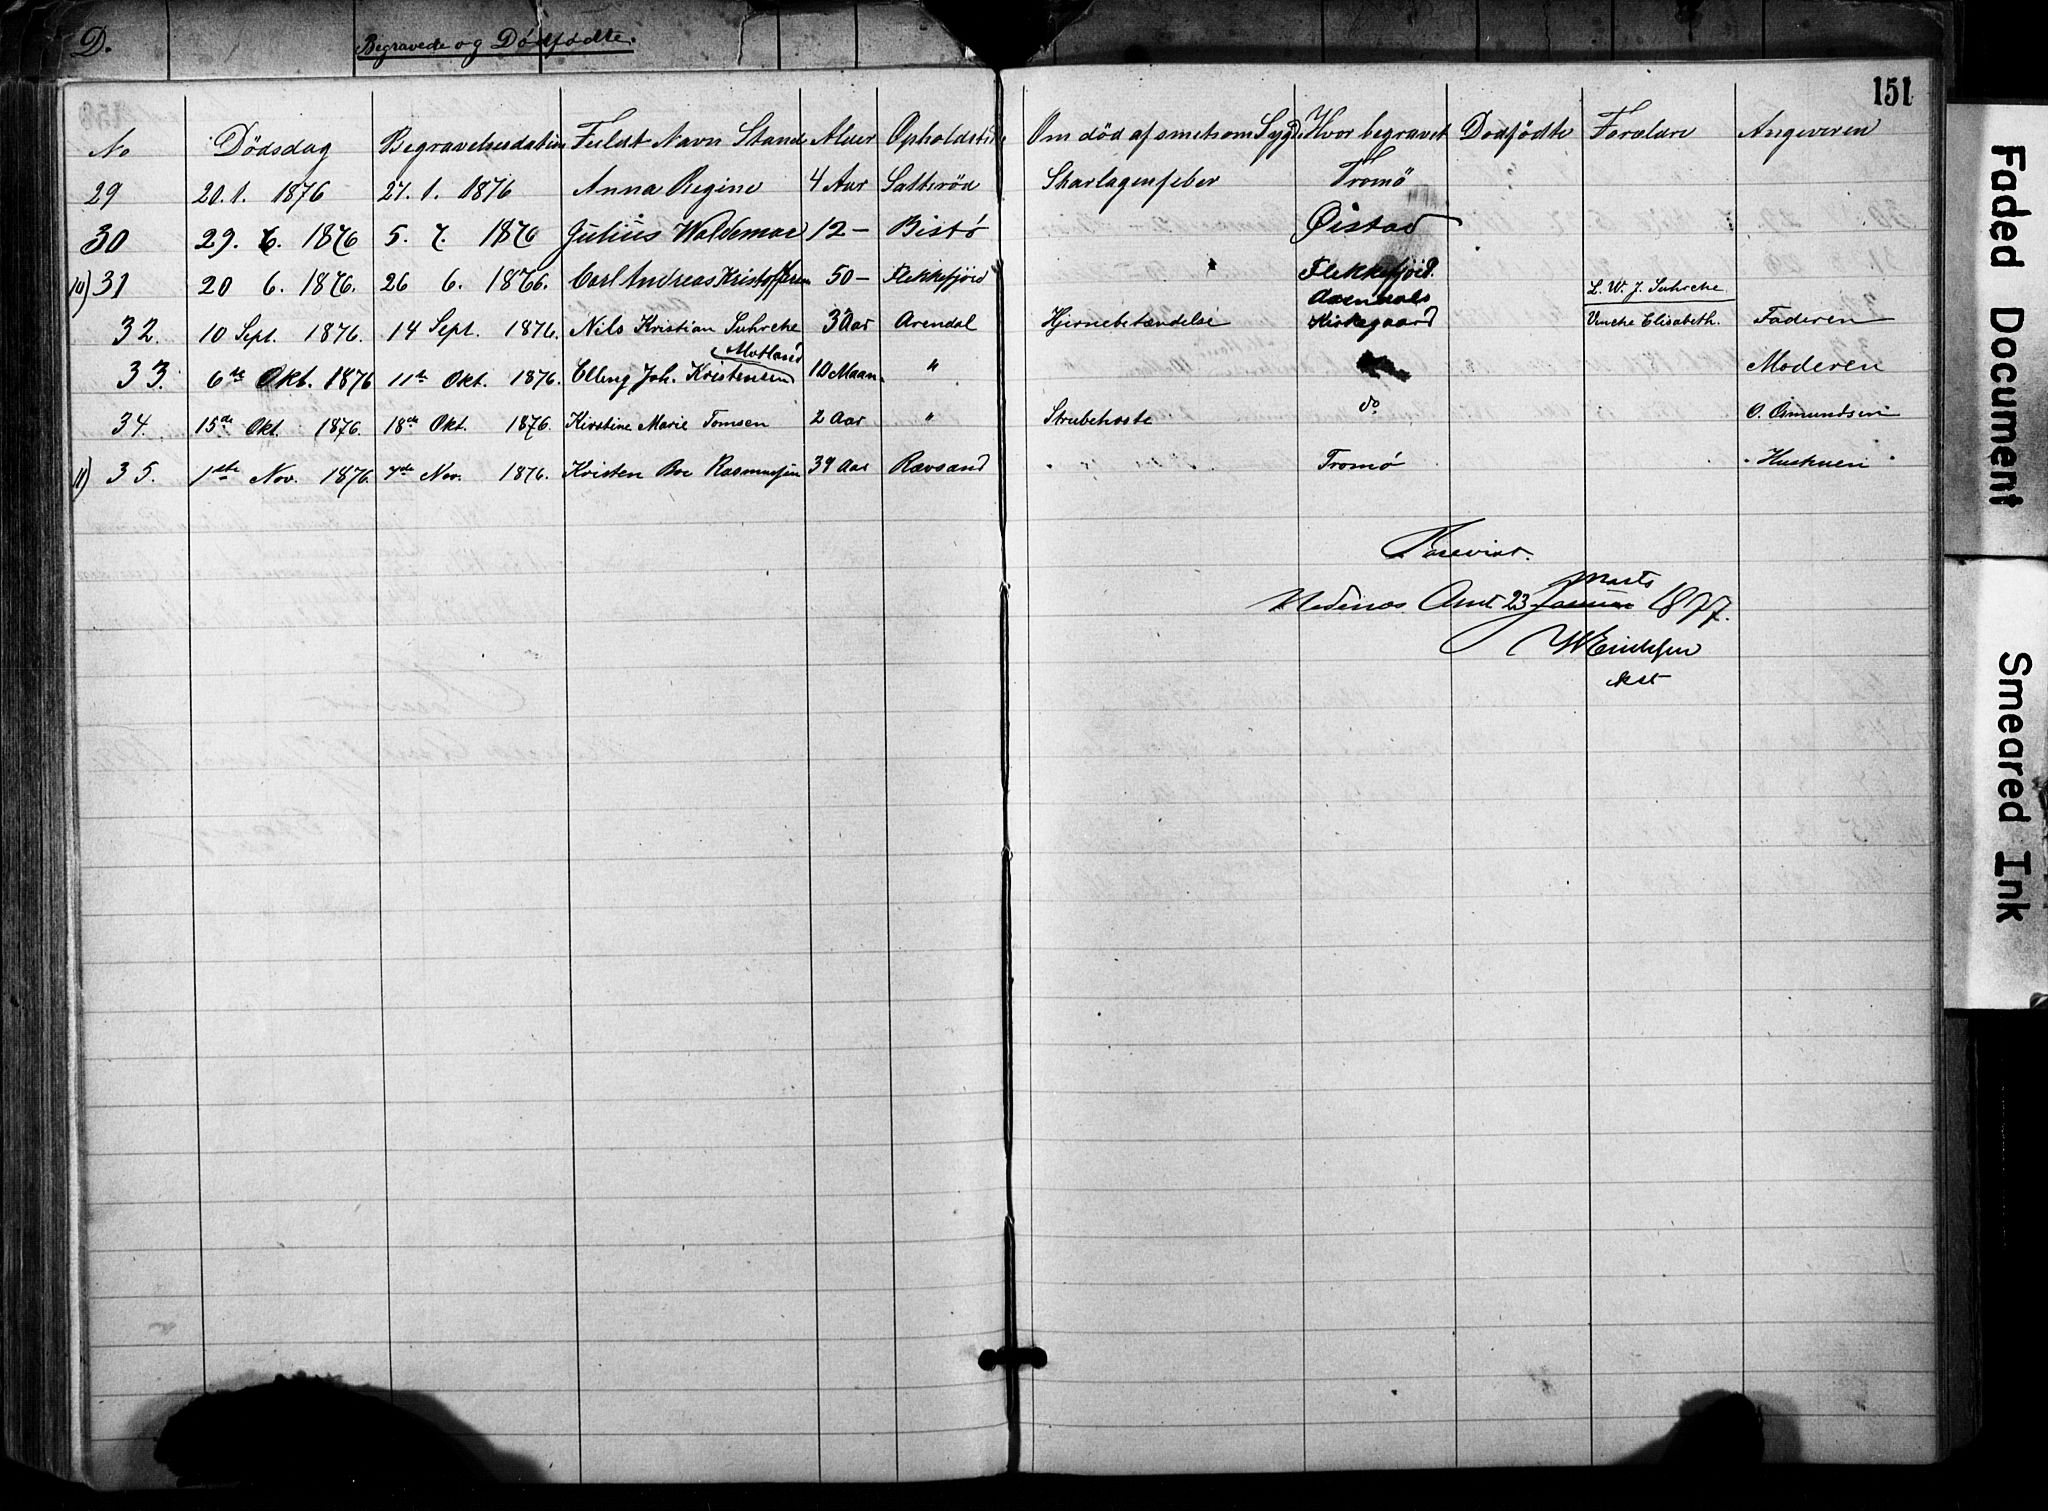 D. Begravede og Dödfödte.
151
No Dödsdag Begravelsesdatum Fuldt Navn Stand Alder Opholdsted Om död af smetsom Sygd Hvor begravet Dodfödte Forældre Angiveren
29 20. 1. 1876 27. 1. 1876 Anna Regine 4 Aar Satteröd Skarlagenfeber Tromö
30 29. 6. 1876 5. 7. 1876 Julius Waldemar 12 – Bistö Öistad
10) 31 20 6. 1876. 26 6. 1876. Carl Andreas Kristoffersen 50 – Flekkefjord Flekkefjord.
32. 10 Sept. 1876. 14 Sept. 1876. Nils Kristian Suhrcke 3 Aar Arendal Hjernebetændelse Arendals Kirkegaard L. W. J. Suhrcke Vencke Elisabeth. Faderen
33. 6te Okt. 1876 11te Okt. 1876. Elling Joh. Kristensen Motland 10 Maan. " Moderen
34. 15de Okt. 1876. 18de Okt. 1876. Kirstine Marie Tomsen 2 Aar " Strubehoste do O. Osmundsen
11) 35. 1ste Nov. 1876 7de Nov. 1876. Kristen Boe Rasmussen 39 Aar Rævsand Tromö Hustruen
Passevist.
Nedenæs Amt 23 Januar Marts 1877.
W Eriksen
kst
Faded Document
Smeared Ink